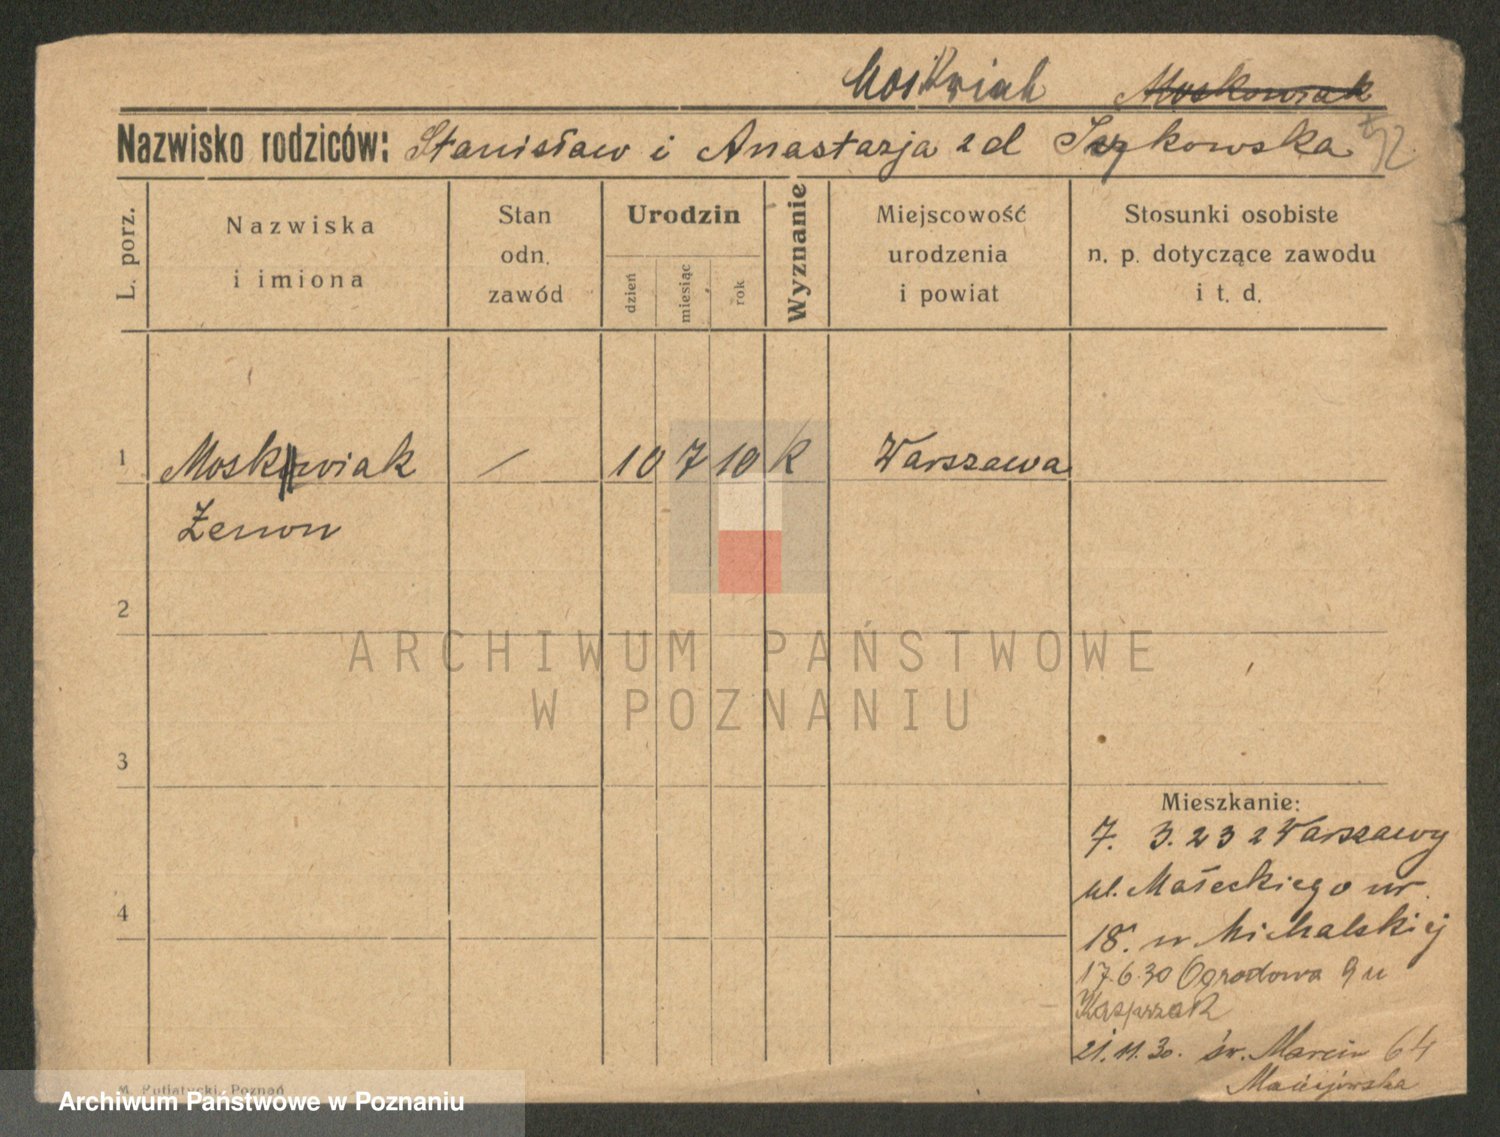 Moskwiak Moskowiak
Nazwisko rodziców: Stanisław i Anastazja z d
L. porz.
Nazwiska
i imiona
Stan
odn.
zawód
Urodzin
dzień
miesiąc
rok
Wyznanie
Miejscowość
urodzenia
i powiat
Stosunki osobiste
n. p. dotyczące zawodu
i t. d.
1 Moskwiak / 10 7 10 k Warszawa
Zenon
2
ARCHIWUM PAŃSTWOWE
W POZNANIU
3
Mieszkanie:
7. 3. 23 z Warszawy
ul. Małeckiego nr.
18. u Michalskiej
4
17.6.30 Ogrodowa 9 u
Kasprzak
21.11.30. św. Marcin 64
Maciejewska
Putiatycki, Poznań
Archiwum Państwowe w Poznaniu